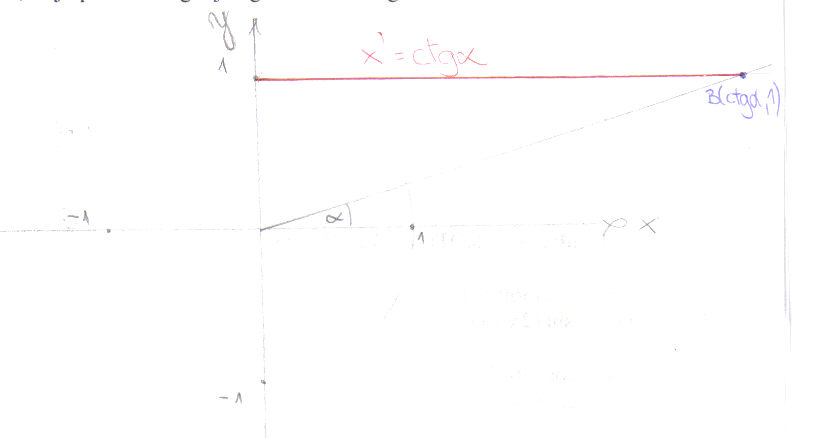 y
1
x' = ctgα
B(ctgα,1)
-1
α
1
x
-1